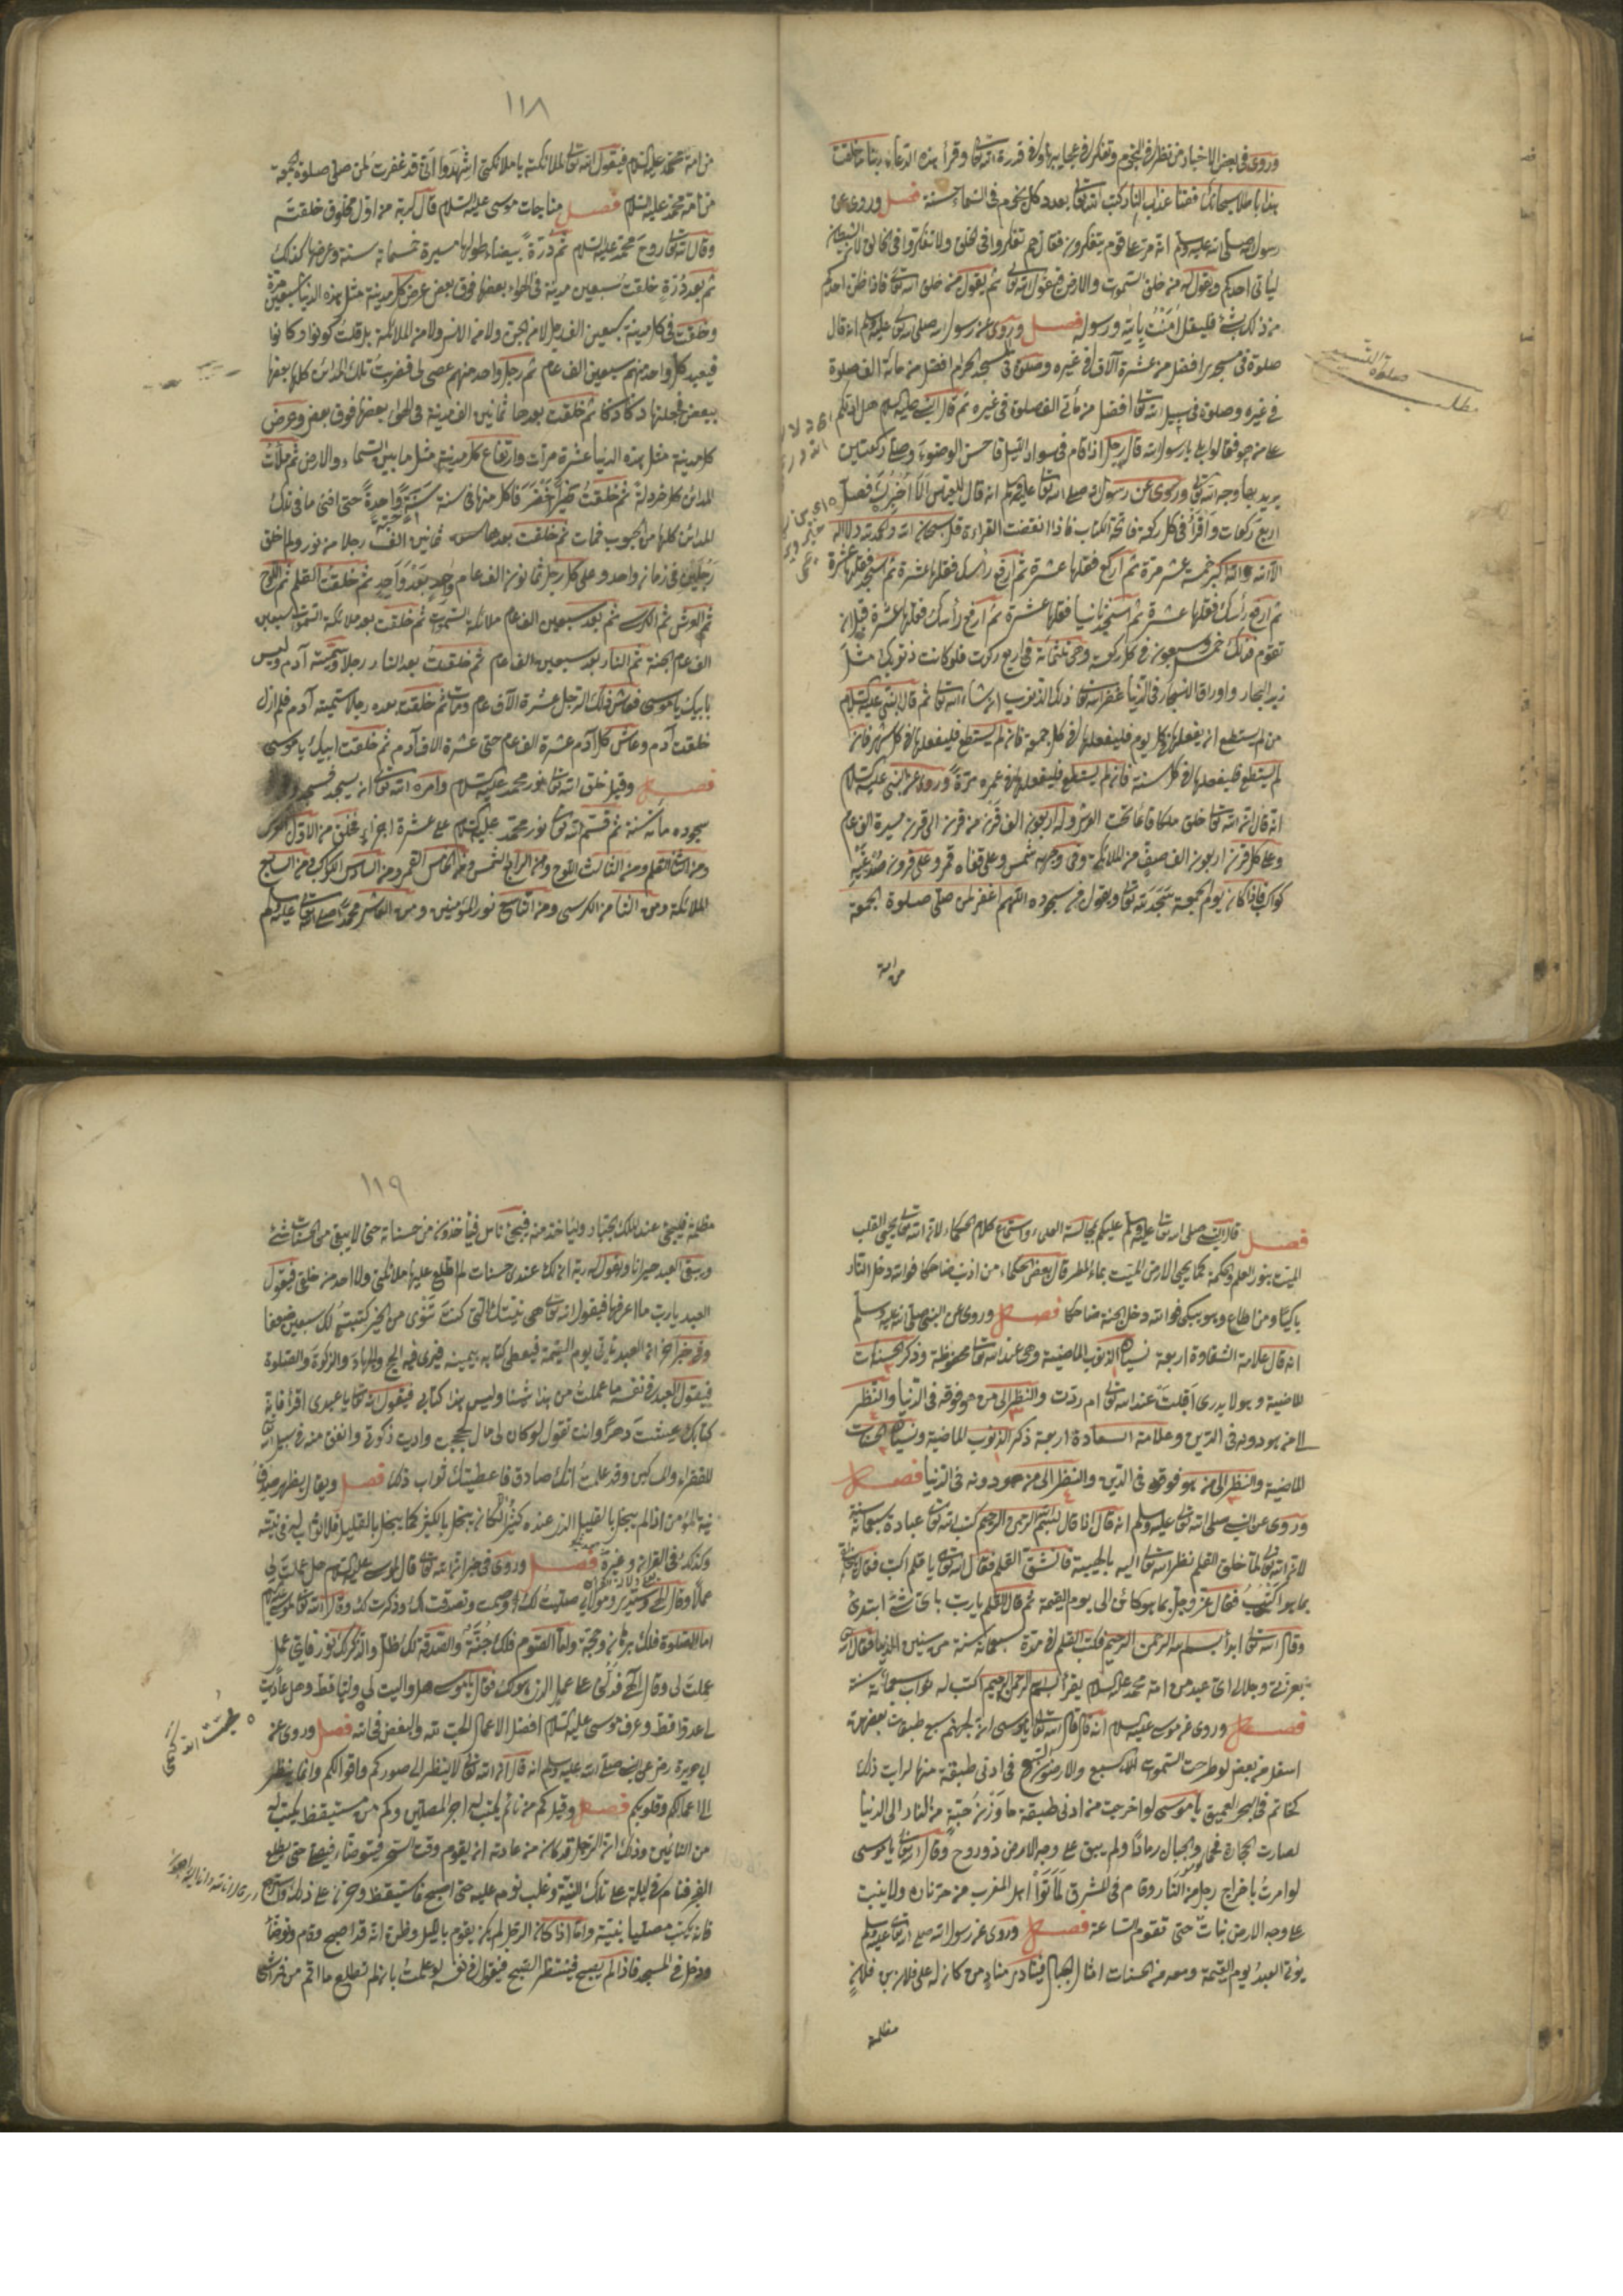 وروى في بعض الاخبار من نظر الى النجوم وتفكر في عجايبها وفي قدرة الله تعالى وقرأ هذه الدعاء ربنا ما خلقت
هذا باطلا سبحانك فقنا عذاب النار كتب الله تعالى بعدد كل نجوم في السماء حسنة فصل وروى عن
رسول الله صلى الله عليه وسلم انه مر على قوم يتفكرون فقال لهم تفكروا في الخلق ولا تفكروا في الخالق لان الشيطان
ليأتي احدكم ويقول له من خلق السموات والارض فيقول الله تعالى ثم يقول من خلق الله تعالى فاذا ظن احدكم
من ذلك بشئ فليقل امنت بالله ورسوله فصل وروى عن رسول الله صلى الله تعالى عليه وسلم انه قال
صلوة في مسجدي افضل من عشرة آلاف في غيره وصلوة في المسجد الحرام افضل من مائة الف صلوة
في غيره وصلوة في سبيل الله تعالى افضل من مأتي الف صلوة في غيره ثم قال النبي عليه السلام هل ادلكم
على من هو فقالوا بلى يا رسول الله قال رجل اذا قام في سواد الليل فاحسن الوضوء وصلى ركعتين
يريد بها وجه الله تعالى وروى عن رسول الله صلى الله تعالى عليه وسلم انه قال للعباس الا اخبرك فصل
اربع ركعات واقرأ في كل ركعة فاتحة الكتاب فاذا انقضت القراءة قل سبحان الله والحمد لله ولا اله
الا الله والله اكبر خمسة عشر مرة ثم اركع فقلها عشرة ثم ارفع رأسك فقلها عشرة ثم اسجد فقلها عشرة
ثم ارفع رأسك فقلها عشرة ثم اسجد ثانيا فقلها عشرة ثم ارفع رأسك فقلها عشرة قبل ان
تقوم فذلك خمس وسبعون في كل ركعة وهي ثلثمائة في اربع ركعت فلو كانت ذنوبك مثل
زبد البحار واوراق الاشجار في الدنيا غفر الله تعالى ذلك الذنوب ان شاء الله تعالى ثم قال النبي عليه السلام
من لم يستطع ان يفعلها في كل يوم فليفعلها في كل جمعة فان لم يستطع فليفعلها في كل شهر فان
لم يستطع فليفعلها في كل سنة فان لم يستطع فليفعلها في عمره مرة وروى عن النبي عليه السلام
انه قال ان الله تعالى خلق ملكا قائما تحت العرش وله اربعون الف قرن من قرن الى قرن مسيرة الف عام
وعلى كل قرن اربعون الف صف من الملائكة وفي وجهه شمس وعلى قفاه قمر وعلى
كواكب فاذا كان يوم الجمعة سجد لله تعالى ويقول في سجوده اللهم اغفر لمن صلى صلوة الجمعة
من امة
صلوة التسبيح
مطلب
١١٨
من امة محمد عليه السلام فيقول الله تعالى للملائكة يا ملائكتي اشهدوا انى قد غفرت لمن صلى صلوة الجمعة
من امة محمد عليه السلام فصل مناجات موسى عليه السلام قال كربه من اول مخلوق خلقته
وقال الله تعالى روح محمد عليه السلام ثم درة بيضاء طولها مسيرة خمسمائة سنة وعرضها كذلك
ثم بعد درة خلقت سبعين مدينة في الهواء بعضها فوق بعض عرض كل مدينة مثل هذه الدنيا سبعين مرة
وخلقت في كل مدينة سبعين الف رجل لا من الجن ولا من الانس ولا من الملائكة بل قلت كونوا فكانوا
فيعبد كل واحد منهم سبعين الف عام ثم رجل واحد منهم عصى لى فضربت تلك المدائن كلها بعضها
ببعض فجعلتها دكا دكا ثم خلقت بعدها ثمانين الف مدينة في الهواء بعضها فوق بعض وعرض
كل مدينة مثل هذه الدنيا عشرة مرات وارتفاع كل مدينة مثل ما بين السماء والارض ثم ملأت
المدائن كلها خردلة ثم خلقت طيرا خضر فاكل منها في سنة حبة واحدة حتى افنى ما في تلك
المدائن كلها من الحبوب فمات ثم خلقت بعدها ثمانين الف رجلا من نور ولم اخلق
رجلين في زمان واحد وعلى كل رجل ثمانون الف عام واحد بعد واحد ثم خلقت القلم ثم اللوح
ثم العرش ثم الكرسى ثم بعد سبعين الف عام ملائكة السموات ثم خلقت بعد ملائكة السموات سبعين
الف عام الجنة ثم النار بعد سبعين الف عام ثم خلقت بعد النار رجلا وسميته آدم وليس
بابيك يا موسى فعاش ذلك الرجل عشرة الآف عام ومات ثم خلقت بعده رجلا سميته آدم فلم ازل
خلقت آدم وعاش كل آدم عشرة الف عام حتى عشرة الاف آدم ثم خلقت ابيك يا موسى
فصل وقيل خلق الله تعالى نور محمد عليه السلام وامره الله تعالى ان يسجد فسجد
سجوده مائة سنة ثم قسم الله تعالى نور محمد عليه السلام على عشرة اجزاء فخلق من الاول العرش
ومن الثاني القلم ومن الثالث اللوح ومن الرابع الشمس ومن الخامس القمر ومن السادس الكواكب ومن السابع
الملائكة ومن الثامن الكرسى ومن التاسع نور المؤمنين ومن العاشر محمدا صلى الله تعالى عليه وسلم
فصل قال النبي صلى الله تعالى عليه وسلم عليكم بمجالسة العلماء واستماع كلام الحكماء لان الله تعالى يحيى القلب
الميت بنور العلم والحكمة كما يحيى الارض الميت بماء المطر قال بعض الحكماء من اذنب ضاحكا فوالله دخل النار
باكيا ومن اطاع وهو يبكى فوالله دخل الجنة ضاحكا فصل وروى عن النبي صلى الله عليه وسلم
انه قال علامة الشقاوة اربعة نسيان الذنوب الماضية وهي عند الله تعالى محفوظة وذكر الحسنات
الماضية وهو لا يدرى اقبلت عند الله تعالى ام ردت والنظر الى من هو فوقه في الدنيا والنظر
الى من هو دونه في الدين وعلامة السعادة اربعة ذكر الذنوب الماضية ونسيان الحسنات
الماضية والنظر الى من هو فوقه في الدين والنظر الى من هو دونه في الدنيا فصل
وروى عن النبي صلى الله تعالى عليه وسلم انه قال اذا قال بسم الله الرحمن الرحيم كتب الله تعالى عبادة سبعمائة سنة
لان الله تعالى لما خلق القلم نظر الله تعالى اليه بالهيبة فانشق القلم فقال الله تعالى يا قلم اكتب فقال
بما هو اكتب فقال عز وجل بما هو كائن الى يوم القيمة ثم قال القلم يا رب باى شئ ابتدئ
وقال الله تعالى ابدأ بسم الله الرحمن الرحيم فكتب القلم في مدة سبعمائة سنة من سنين الدنيا فقال الله
بعزتى وجلالى اى عبد من امة محمد عليه السلام يقرأ بسم الله الرحمن الرحيم اكتب له ثواب سبعمائة سنة
فصل وروى عن موسى عليه السلام انه قال قال الله تعالى يا موسى ان لجهنم سبع طبقات بعضهن
اسفل من بعض لو طرحت السموات السبع والارضون السبع في ادنى طبقة منها لرايت ذلك
كخاتم في البحر العميق يا موسى لو اخرجت من ادنى طبقة ما وزن حبة من النار الى الدنيا
لصارت الحجارة فحما والجبال رمادا ولم يبق على وجه الارض ذو روح وقال الله تعالى يا موسى
لو امرت باخراج رجل من النار وقام في المشرق لماتوا اهل المغرب من حر ناره ولا ينبت
على وجه الارض نبات حتى تقوم الساعة فصل وروى عن رسول الله صلى الله تعالى عليه وسلم
يؤتى العبد يوم القيمة ومعه من الحسنات امثال الجبال فينادى مناد من كان له على فلان بن فلان
مظلمة
١١٩
مظلمة فليجئ عند الملك الجبار وليأخذ منه فيجئ ناس فيأخذون من حسناته حتى لا يبقى من الحسنات شئ
وبقى العبد حيرانا ويقول له ربه ان لك عندى حسنات لم اطلع عليها ملائكتى ولا احد من خلقى فيقول
العبد يا رب ما اعرفها فيقول الله تعالى هي نيتك التي كنت تنوى من الخير كتبته لك سبعين ضعفا
وفي خبر اخر ان العبد يأتى يوم القيمة فيعطى كتابه بيمينه فيرى فيه الحج والجهاد والزكوة والصلوة
فيقول العبد في نفسه ما عملت من هذا شيئا وليس هذا كتابى فيقول الله تعالى يا عبدى اقرأ فانه
كتابك عشت دهرا وانت تقول لو كان لى مال لحججت واديت زكوته وانفق منه في سبيل الله
للفقراء والمساكين وقد علمت انك صادق فاعطيتك ثواب ذلك فصل ويقال يظهر صدق
نية المؤمن اذا لم يبخل بالقليل الذى عنده كثيرا لكان يبخل بالكثير كما يبخل بالقليل فلا ثواب في نيته
وكذلك في القرآن وغيره فصل وروى في خبر ان الله تعالى قال لموسى عليه السلام هل عملت لى
عملا وقال الهى وسيدى ومولاى صليت لك وصمت وتصدقت لك وذكرت لك وقال الله تعالى لموسى
اما الصلوة فلك برهان وحجة واما الصوم فلك جنة والصدقة لك ظل والذكر لك نور فاى عمل
عملت لى وقال الهى فدلنى على عمل الذى هو لك فقال يا موسى هل واليت لى وليا قط وهل عاديت
لى عدوا قط وعرف موسى عليه السلام افضل الاعمال الحب لله والبغض في الله فصل وروى عن
ابى هريرة رضى عن النبي صلى الله عليه وسلم انه قال ان الله تعالى لا ينظر الى صوركم واقوالكم وانما ينظر
الى اعمالكم وقلوبكم فصل وقيل كم من نائم يكتب له اجر المصلين وكم من مستيقظ يكتب له
من النائمين وذلك ان الرجل قد كان من عادته ان يقوم وقت السحر فيتوضأ ويصلى حتى يطلع
الفجر فنام في ليلة على تلك النية وغلب نومه عليه حتى اصبح فاستيقظ وحزن على ذلك واسترجع
فانه يكتب مصليا بنيته واما اذا كان الرجل لم يكن يقوم بالليل وظن انه قد اصبح وقام وتوضأ
ودخل في المسجد فاذا لم يصبح فينتظر الصبح فيقول في نفسه لو علمت بانه لم تطلع ما اقم من فراشى